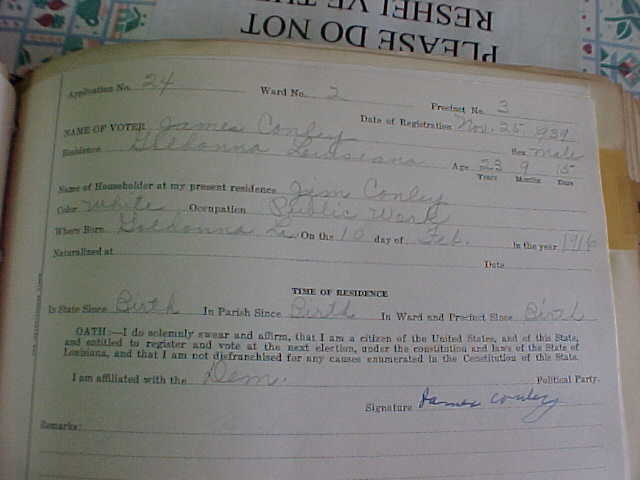 PLEASE DO NOT
RESHELVE THE
Application No. 24 Ward No. 2 Precinct No. 3
Date of Registration Nov. 25 1939
NAME OF VOTER James Conley Sex male
Residence Goldonna Louisiana Age 23 9 15
Years Months Days
Name of Householder at my present residence Jim Conley
Color White Occupation Public Work
Where Born Goldonna La. On the 10 day of Feb. in the year 1916
Naturalized at Date
TIME OF RESIDENCE
In State Since Birth In Parish Since Birth In Ward and Precinct Since Birth
OATH:—I do solemnly swear and affirm, that I am a citizen of the United States, and of this State,
and entitled to register and vote at the next election, under the constitution and laws of the State of
Louisiana, and that I am not disfranchised for any causes enumerated in the Constitution of this State.
I am affiliated with the Dem. Political Party.
Signature James Conley
Remarks: